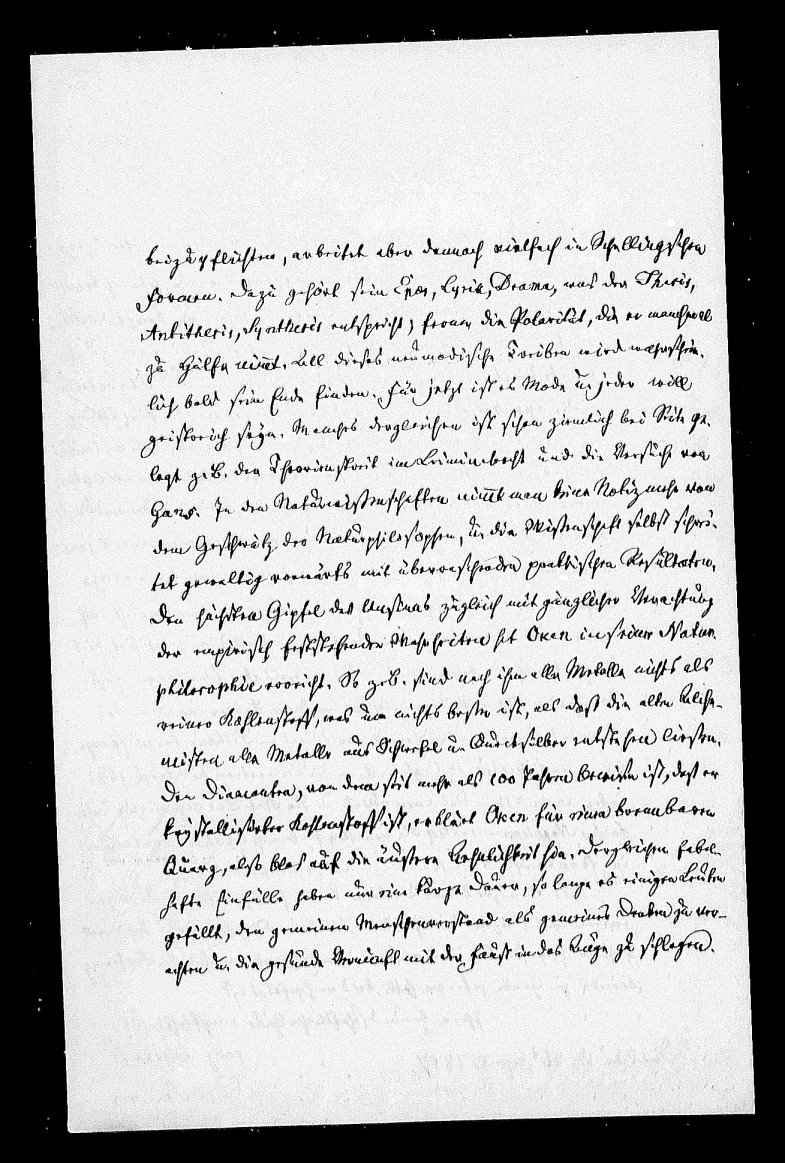 beizupflichten, arbeitet aber dennoch vielfach in Schellingschen
Formen. Dazu gehört sein Epos, Lyrik, Drama, was der Thesis,
Antithesis, Synthesis entspricht; ferner die Polarität, die er manchmal
zu Hülfe nim̄t. All dieses neumodische Treiben wird wahrschein-
lich bald sein Ende finden. Für jetzt ist es Mode u. jeder will
geistreich seyn. Manches dergleichen ist schon ziemlich bei Seite ge-
legt z. B. der Theorienstreit im Criminalrecht und die Versuche von
Gans. In den Naturwissenschaften nim̄t man keine Notiz mehr von
dem Geschwätz der Naturphilosophen, u. die Wissenschaft selbst schrei-
tet gewaltig vorwärts mit überraschenden praktischen Resultaten.
Den höchsten Gipfel des Unsinns zugleich mit gänzlicher Verachtung
der empirisch feststehenden Wahrheiten hat Oken in seiner Natur-
philosophie erreicht. So z. B. sind nach ihm alle Metalle nichts als
reiner Kohlenstoff, was um nichts besser ist, als daß die alten Alche-
misten alle Metalle aus Schwefel u. Quecksilber entstehen ließen.
Den Diamanten, von dem seit mehr als 100 Jahren bewiesen ist, daß er
krystallisirter Kohlenstoff ist, erklärt Oken für einen brennbaren
Quarz, also blos auf die äußere Aehnlichkeit hin. Dergleichen fabel-
hafte Einfälle haben nur eine kurze Dauer, so lange es einigen Leuten
gefällt, den gemeinen Menschenverstand als gemeines Denken zu ver-
achten u. die gesunde Vernunft mit der Faust in das Auge zu schlagen.